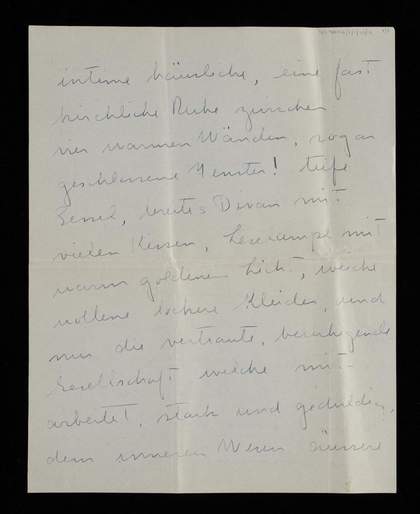 interne häusliche, eine fast
kirchliche Ruhe zwischen
vier warmen Wänden, sogar
geschlossene Fenster! tiefe
Sessel, breites Divan mit
vielen Kissen, Leselampe mit
warm goldenem Licht, weiche
wollene lockere Kleider, und
nur die vertraute, beruhigende
Gesellschaft welche mit-
arbeitet, stark und geduldig,
dem inneren Wesen äussere